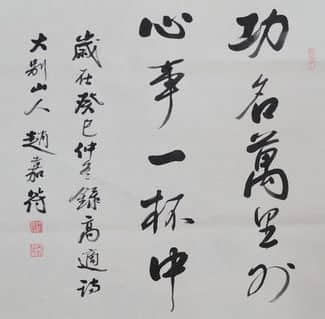 功名萬里外
心事一杯中
歲在癸巳仲冬錄高適詩
大别山人趙嘉符